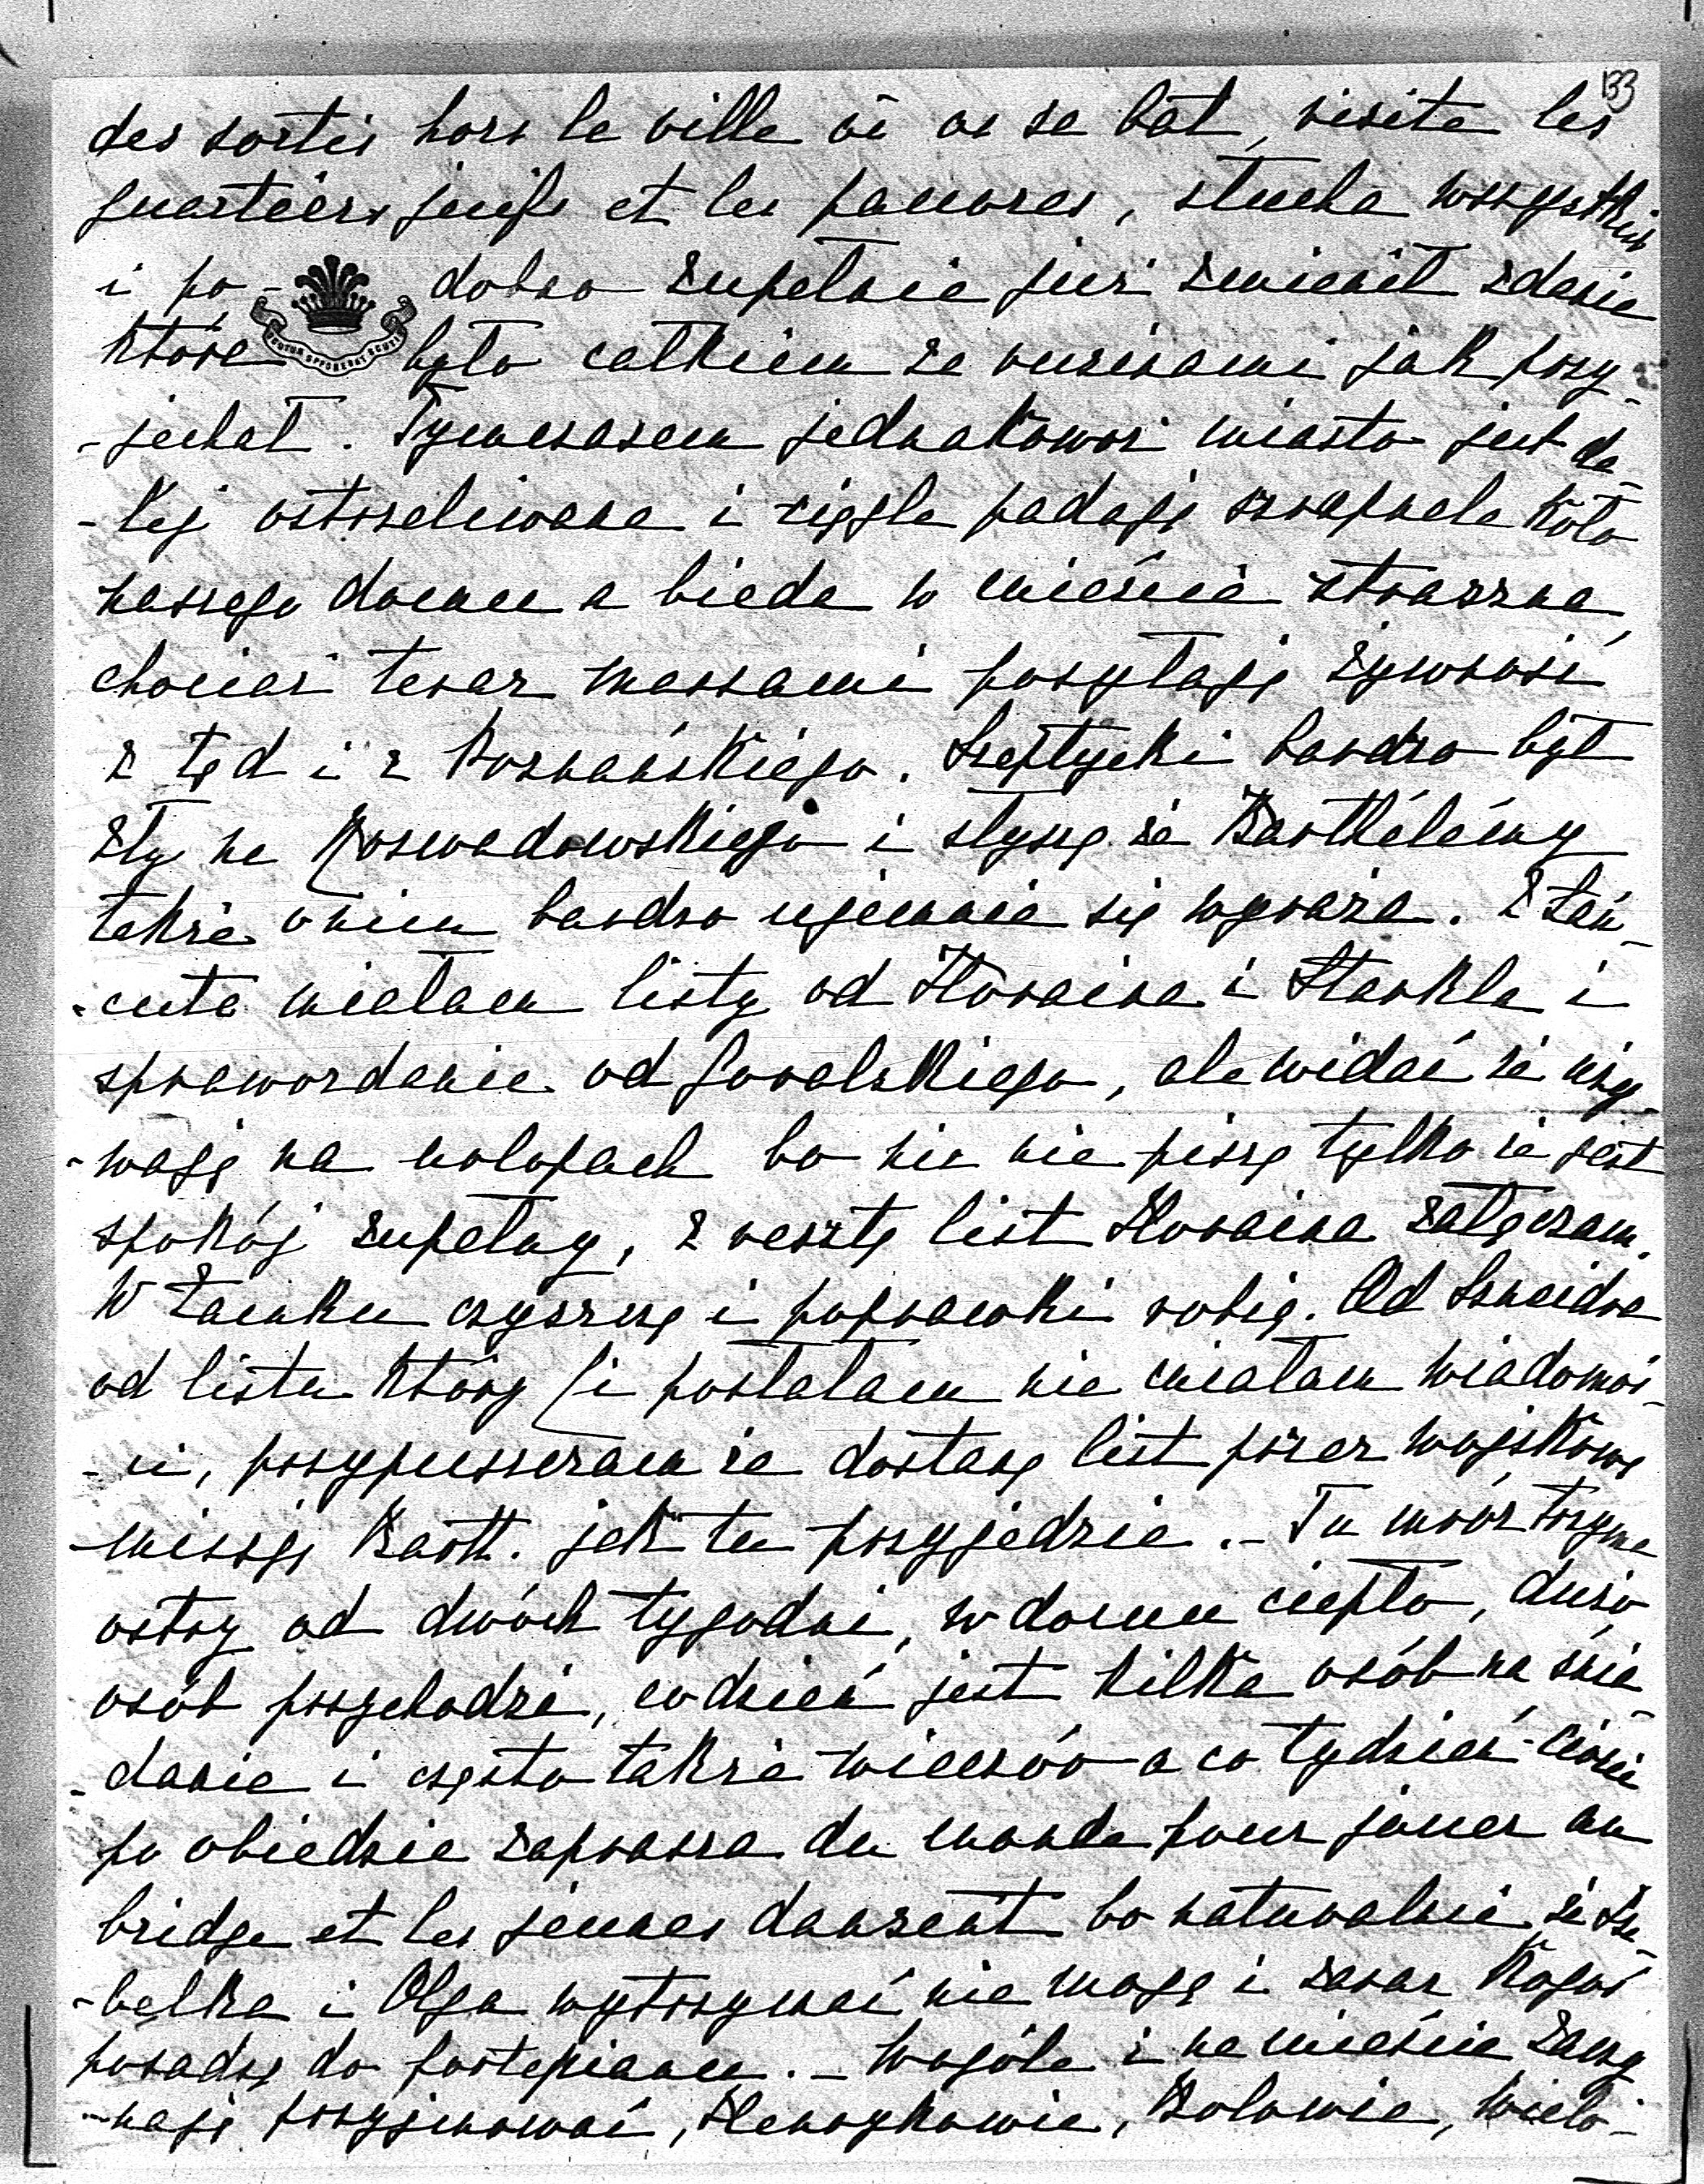 133
des sortis hors le ville où on se bat, visite les
quartiers juifs et les pauvres, słucha wszystkich
i po- dobno zupełnie już zmienił zdanie
które było całkiem za rusinami jak przy-
-jechał. Tymczasem jednakowoż miasto jest da-
-lej ostrzeliwane i ciągle padają szrapnele koło
naszego domu a bieda w mieście straszna,
chociaż teraz massami posyłają żywność
z tąd i z Poznańskiego. Szeptycki bardzo był
zły na Rozwadowskiego i słyszę że Barthélémy
także o nim bardzo ujemnie się wyraża. Z Łań-
-cuta miałam listy od Horaina i Starkla i
sprawozdanie od Goralskiego, ale widać że uży-
-wają na urlopach bo nic nie piszą tylko że jest
spokój zupełny, z resztą list Horaina załączam.
W Zamku czyszczą i poprawki robią. Od Sznaidra
od listu który Ci posłałam nie miałam wiadomoś-
-ci, przypuszczam że dostanę list przez wojskową
-missję Barth. jak tu przyjedzie. - Tu mróz trzyma
ostry od dwóch tygodni, w domu ciepło, dużo
osób przychodzi, codzień jest kilka osób na śnia-
-danie i często także wieczór a co tydzień
po obiedzie zaprasza du monde pour jouer au
bridge et les jeunes dansent bo naturalnie że Iza-
-belka i Olga wytrzymać nie mogą i zaraz kogoś
posadzą do fortepianu. - Wogóle i na mieście zaczy-
-nają przyjmować, Henrykowie, Bolowie, Wielo-